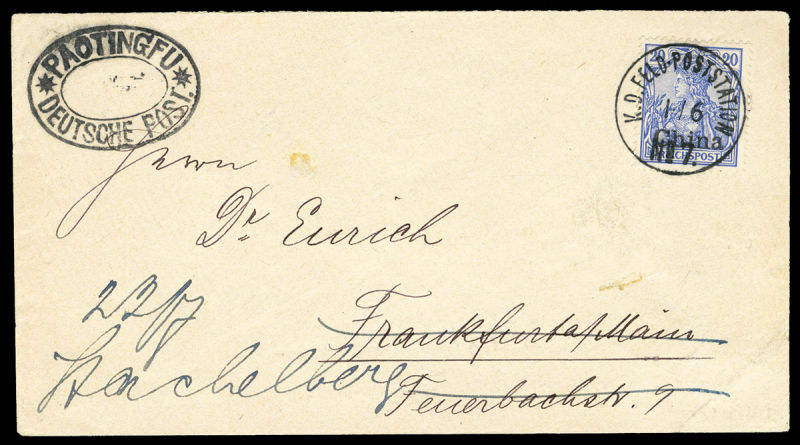 PAOTINGFU
DEUTSCHE POST.
20 20
K. D. FELD-POSTSTATION
1/6
China
REICHSPOST
No 7.
Herrn
Dr. Eurich
Frankfurt a/Main
Feuerbachstr. 9
22/7
Stachelberg